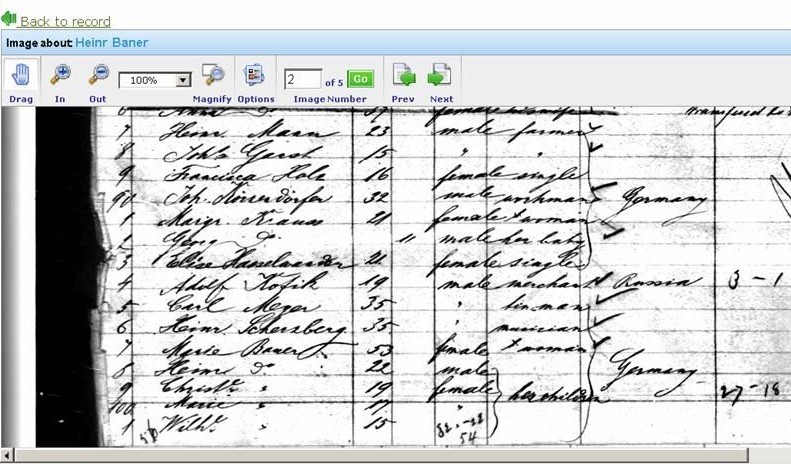 Back to record
Image about: Heinr Baner
100%
2 of 5 Go
Drag In Out Magnify Options Image Number Prev Next
6 Anna do 57 female his wife
7 Heinr Maan 23 male farmer
8 Joh's Garst 15 " "
9 Francisca Holz 16 female single
90 Joh. 32 male workman Germany
1 Margr Krauss 21 female + woman
2 Georg do " male her baby
3 Elise Hasselvander 21 female single
4 Adolf Kofik 19 male merchant Russia 3 - 1
5 Carl Meyer 35 " tinman
6 Heinr Schersberg 35 " musician
7 Marie Bauer 53 female + woman
8 Heinr do 22 male Germany
9 Christ. " 19 female her children 27-18
100 Marie " 17 "
1 Wilh. " 15
54